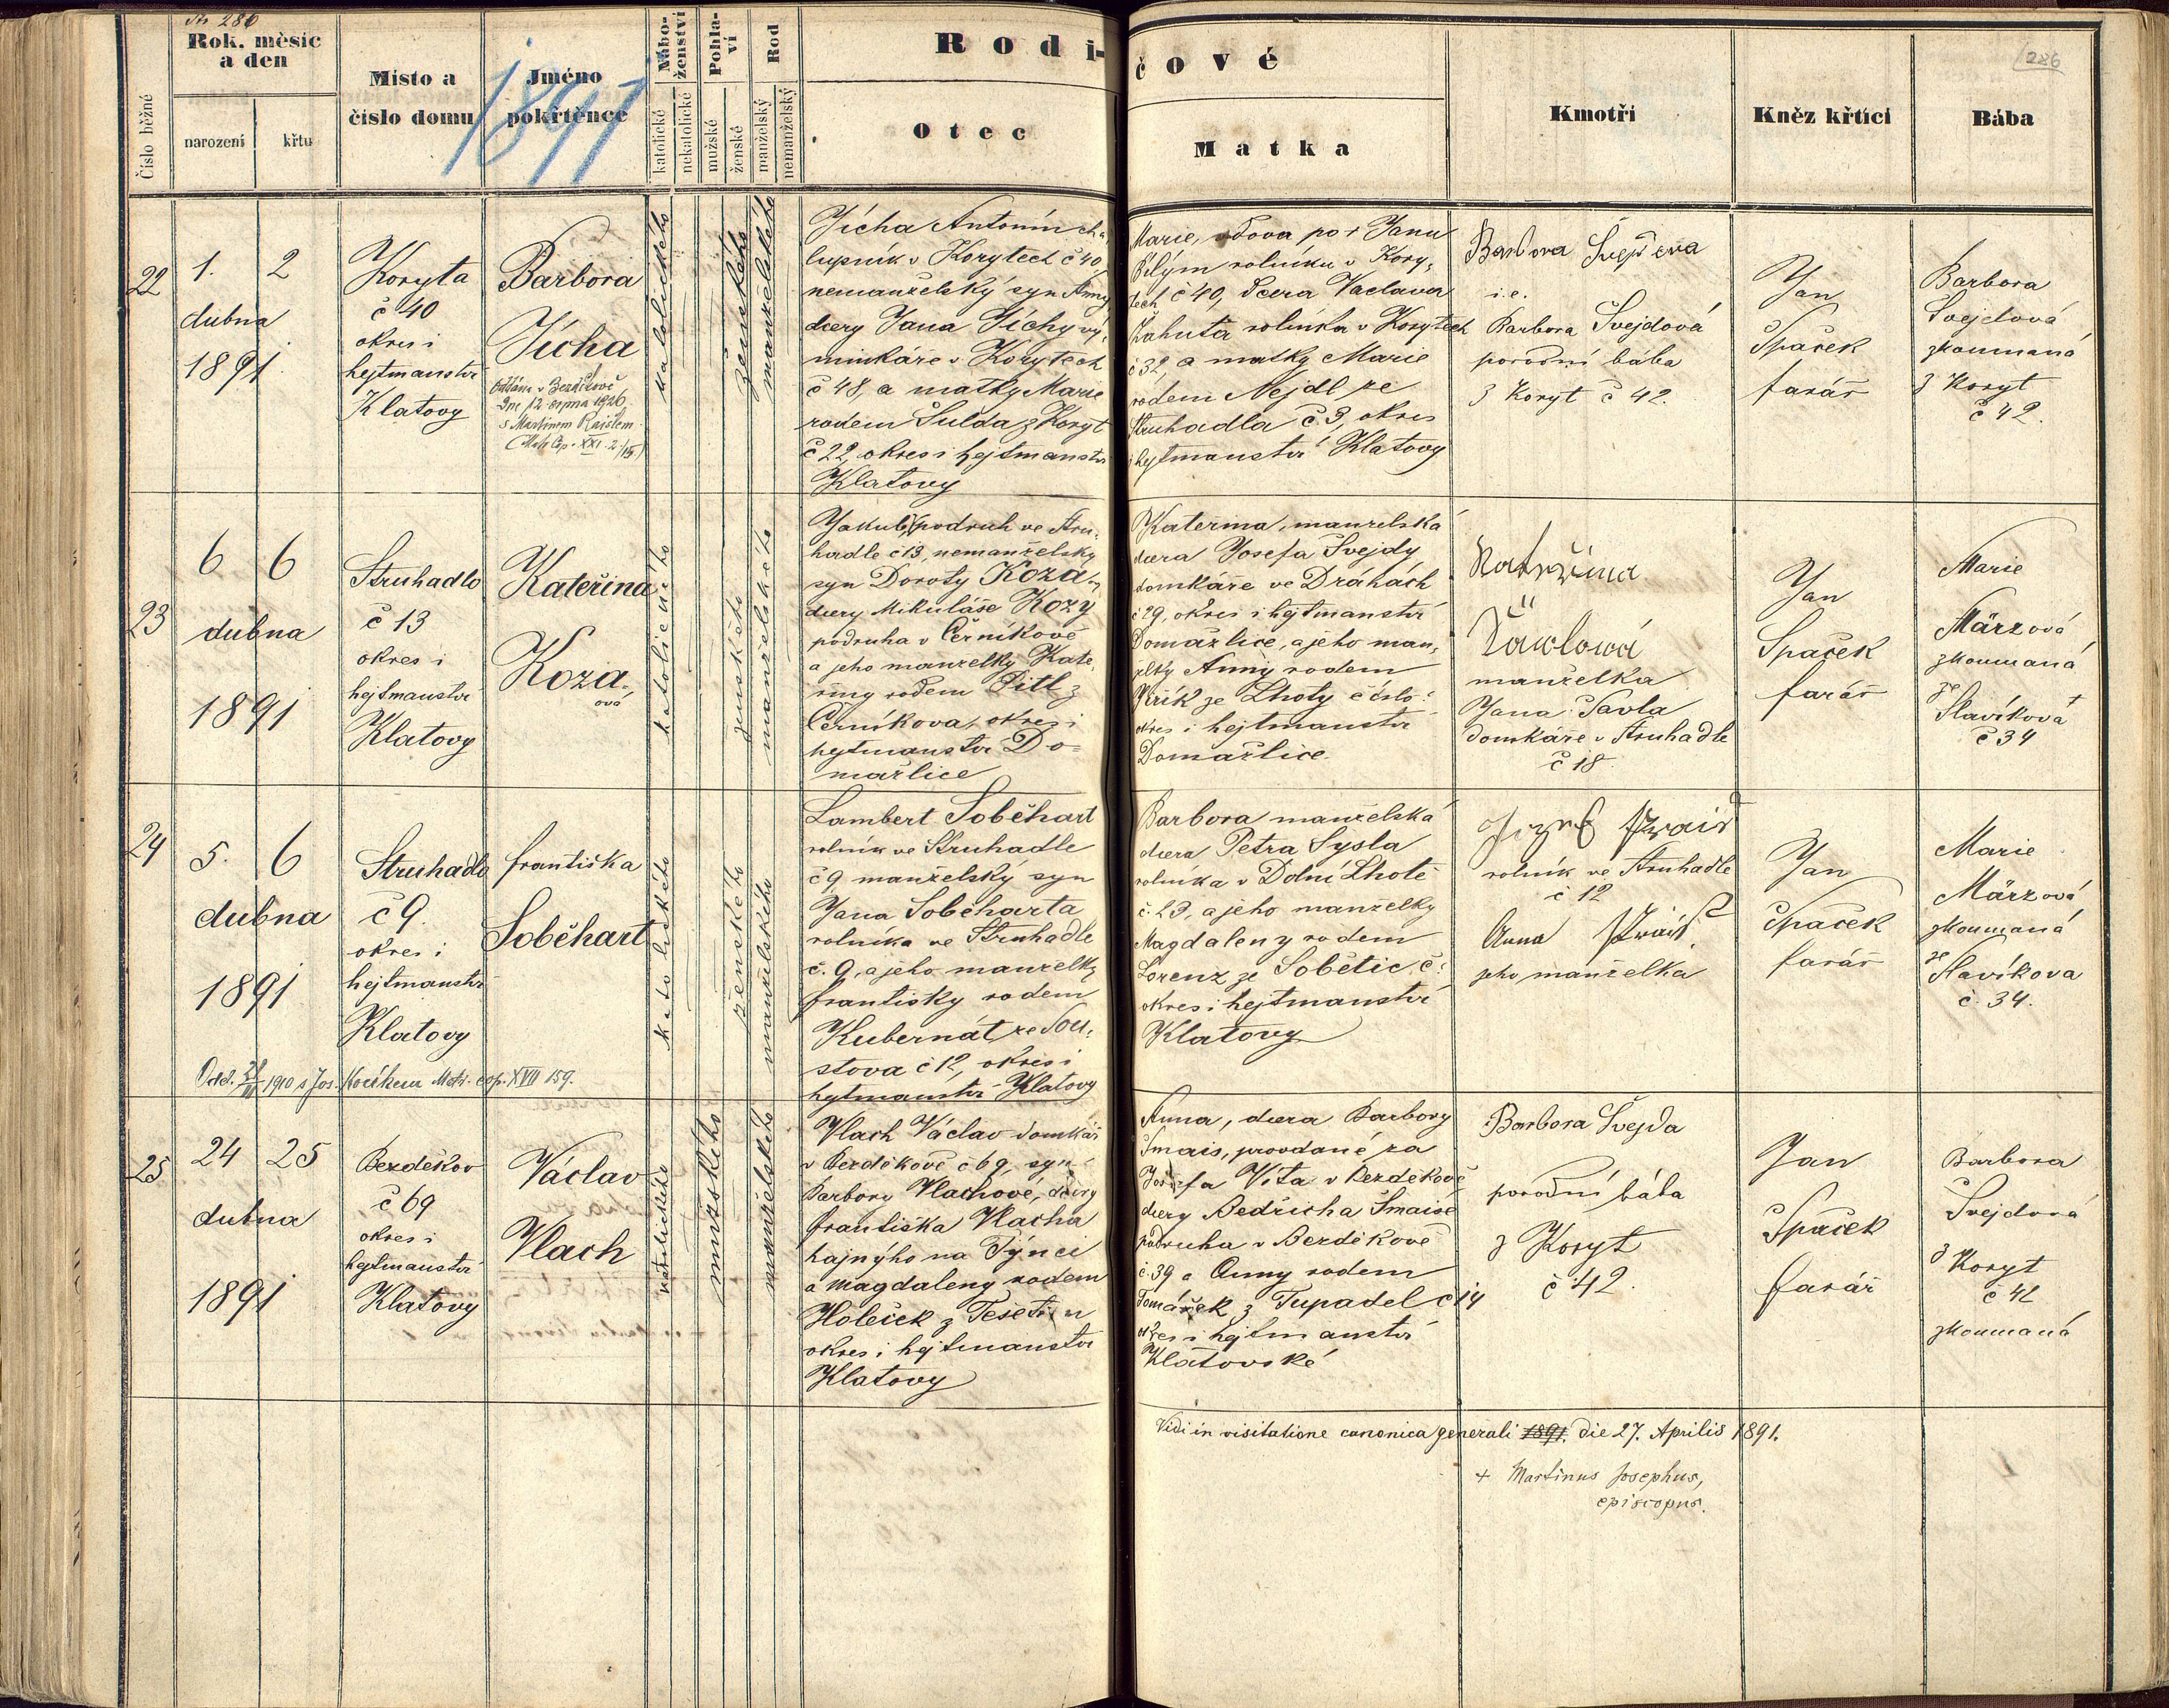 Str 286
Rok, měsíc
a den
Číslo běžné
narození
křtu
Místo a
číslo domu
Jméno
pokřtěnce
1891
Nábo-
ženství
katolické
nekatolické
Pohla-
ví
mužské
ženské
Rod
manželský
nemanželský
Rodi-
čové
Otec
Matka
Kmotři
Kněz křtící
Bába
286
22
1. 2
dubna
1891
Koryta
č 40
okres i
hejtmanství
Klatovy
Barbora
Jícha
Oddána v Bezděkově
dne 12. srpna 1926
s Martinem
katolického
ženského
manželského
Jícha Antonín cha,
lupník v Korytech č 40,
nemanželský syn Anny
dcery Jana Jíchy vý,
minkáře v Korytech
č 48, a matky Marie
rodem Šulda z Koryt
č 22, okres i hejtmanství
Klatovy
Marie, vdova po + Janu
Bílým rolníku v Kory,
tech č 40, dcera Vaclava
Kahuta rolníka v Korytech
č 32, a matky Marie
rodem Nejdl ze
Struhadla č 3, okres
i hejtmanství Klatovy
Barbora
i. e.
Barbora Švejdová
porodní bába
z Koryt č 42.
Jan
Špaček
farář
Barbora
Švejdová
zkoumaná
z Koryt
č 42.
23
6 6
dubna
1891
Struhadlo
č 13
okres i
hejtmanství
Klatovy
Kateřina
Koza-
ová
katolického
ženského
manželského
Jakub, podruh ve Stru-
hadle č 13, nemanželský
syn Doroty Koza-
dcery Mikuláše Kozy
podruha v Černíkově
a jeho manželky Kate,
řiny rodem Pitl z
Černíkova, okres i
hejtmanství Do=
mažlice
Kateřina, manželská
dcera Josefa Švejdy
domkáře ve Dráhách
č 29, okres i hejtmanství
Domažlice, a jeho man,
želky Anny rodem
ze Lhoty číslo
okres i hejtmanství
Domažlice.
Kateřina
Pawlowá
manželka
Jana Pavla
domkáře v Struhadle
č 18.
Jan
Špaček
farář
Marie
Märzová
zkoumaná
ze
Slavíková
č 34
24
5. 6
dubna
1891
Struhadlo
č 9.
okres i
hejtmanství
Klatovy
Františka
Soběhart
Odd. 1910 s Jos. Kocíkem Matr. cop. XVII 159.
katolického
ženského
manželského
Lambert Soběhart
rolník ve Struhadle
č 9, manželský syn
Jana Soběharta
rolníka ve Struhadle
č. 9, a jeho manželky
Františky rodem
Kubernát ze Sou,
stova č 12, okres i
hejtmanství Klatovy
Barbora manželská
dcera Petra Sysla
rolníka v Dolní Lhotě
č. 23, a jeho manželky
Magdaleny rodem
Lorenz ze Sobětic, č:
okres i hejtmanství
Klatovy
Jozef
rolník ve Struhadle
č 12
Anna
jeho manželka
Jan
Špaček
farář
Marie
Märzová
zkoumaná
ze
Slavíkova
č. 34.
25
24 25
dubna
1891
Bezděkov
č 69
okres i
hejtmanství
Klatovy
Václav
Vlach
katolického
mužského
manželského
Vlach Václav domkář
v Bezděkově č 69, syn
Barbory Vlachové, dcery
Františka Vlacha
hajného na Týnci
a Magdaleny rodem
Holeček z Tešetin
okres i hejtmanství
Klatovy
Anna, dcera Barbory
Šmais, provdané za
Josefa Víta v Bezděkově
dcery Bedřicha Šmaise
podruha v Bezděkově
č. 39 a Anny rodem
Tomášek z Tupadel č 14
okres i hejtmanství
Klatovské
Barbora Švejda
porodní bába
z Koryt
č 42.
Jan
Špaček
farář
Barbora
Švejdová
z Koryt
č 42
zkoumaná
Vidi in visitatione canonica generali 1891. die 27. Aprilis 1891.
+ Martinus Josephus,
episcopus.